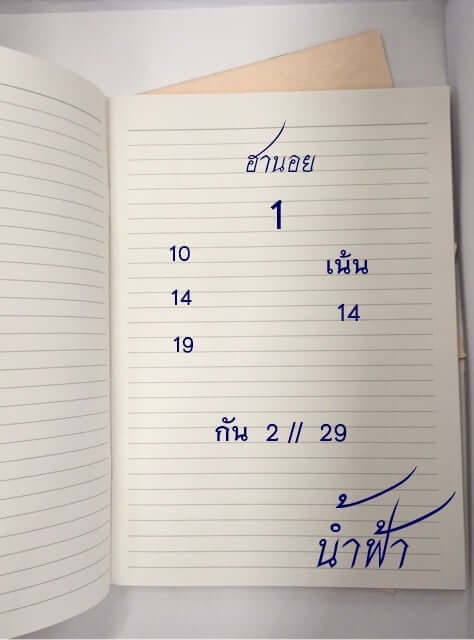 ฮานอย
1
10
เน้น
14
14
19
กัน 2 // 29
น้ำฟ้า